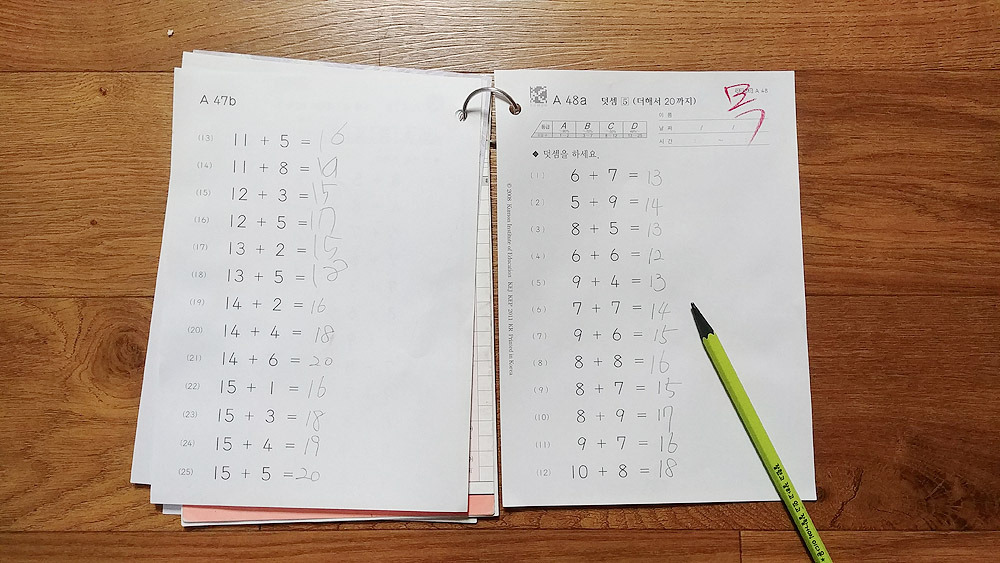 A 47b
(13) 11 + 5 = 16
(14) 11 + 8 = 19
(15) 12 + 3 = 15
(16) 12 + 5 = 17
(17) 13 + 2 = 15
(18) 13 + 5 = 18
(19) 14 + 2 = 16
(20) 14 + 4 = 18
(21) 14 + 6 = 20
(22) 15 + 1 = 16
(23) 15 + 3 = 18
(24) 15 + 4 = 19
(25) 15 + 5 = 20
A 48a 덧셈 5 (더해서 20까지)
목
이 름
등급 A B C D
날 짜 / /
시 간 : ~ :
◆ 덧셈을 하세요.
(1) 6 + 7 = 13
(2) 5 + 9 = 14
(3) 8 + 5 = 13
(4) 6 + 6 = 12
(5) 9 + 4 = 13
(6) 7 + 7 = 14
(7) 9 + 6 = 15
(8) 8 + 8 = 16
(9) 8 + 7 = 15
(10) 8 + 9 = 17
(11) 9 + 7 = 16
(12) 10 + 8 = 18
© 2008 Kumon Institute of Education KEJ KEP 2011 KR Printed in Korea